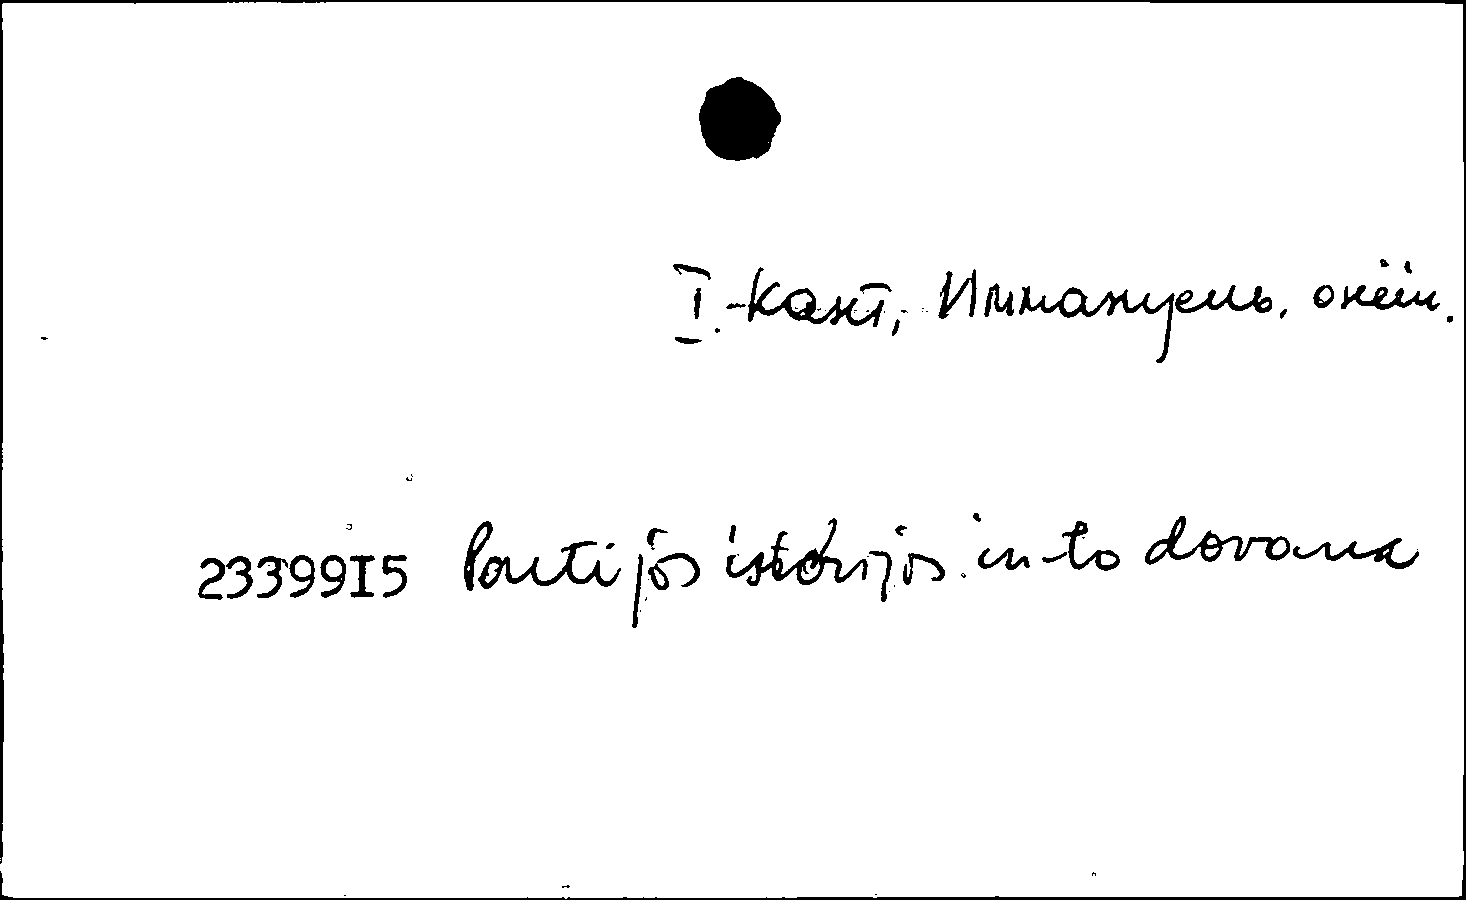 I. Кант, Иммануель, о нём.
23399I5 Partijos istorijos in-to dovana